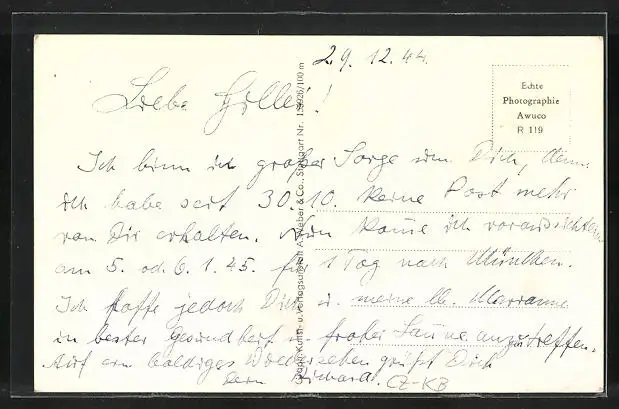 29.12.44.
Liebe Hilde!
Echte
Photographie
Awuco
R 119
Ich binn in großer Sorge um Dich, denn
ich habe seit 30.10. keine Post mehr
von Dir erhalten. Nun komme ich voraussichtlich
am 5. od. 6.1.45. für 1 Tag nach München.
Ich hoffe jedoch Dich u. meine lb. Marianne
in bester Gesundheit u. froher Laune anzutreffen.
Auf ein baldiges Wiedersehen grüßt Dich
Dein Richard.
CZ-KB
Kunst- u. Verlagsanstalt A. Weber & Co., Stuttgart Nr. 100 m